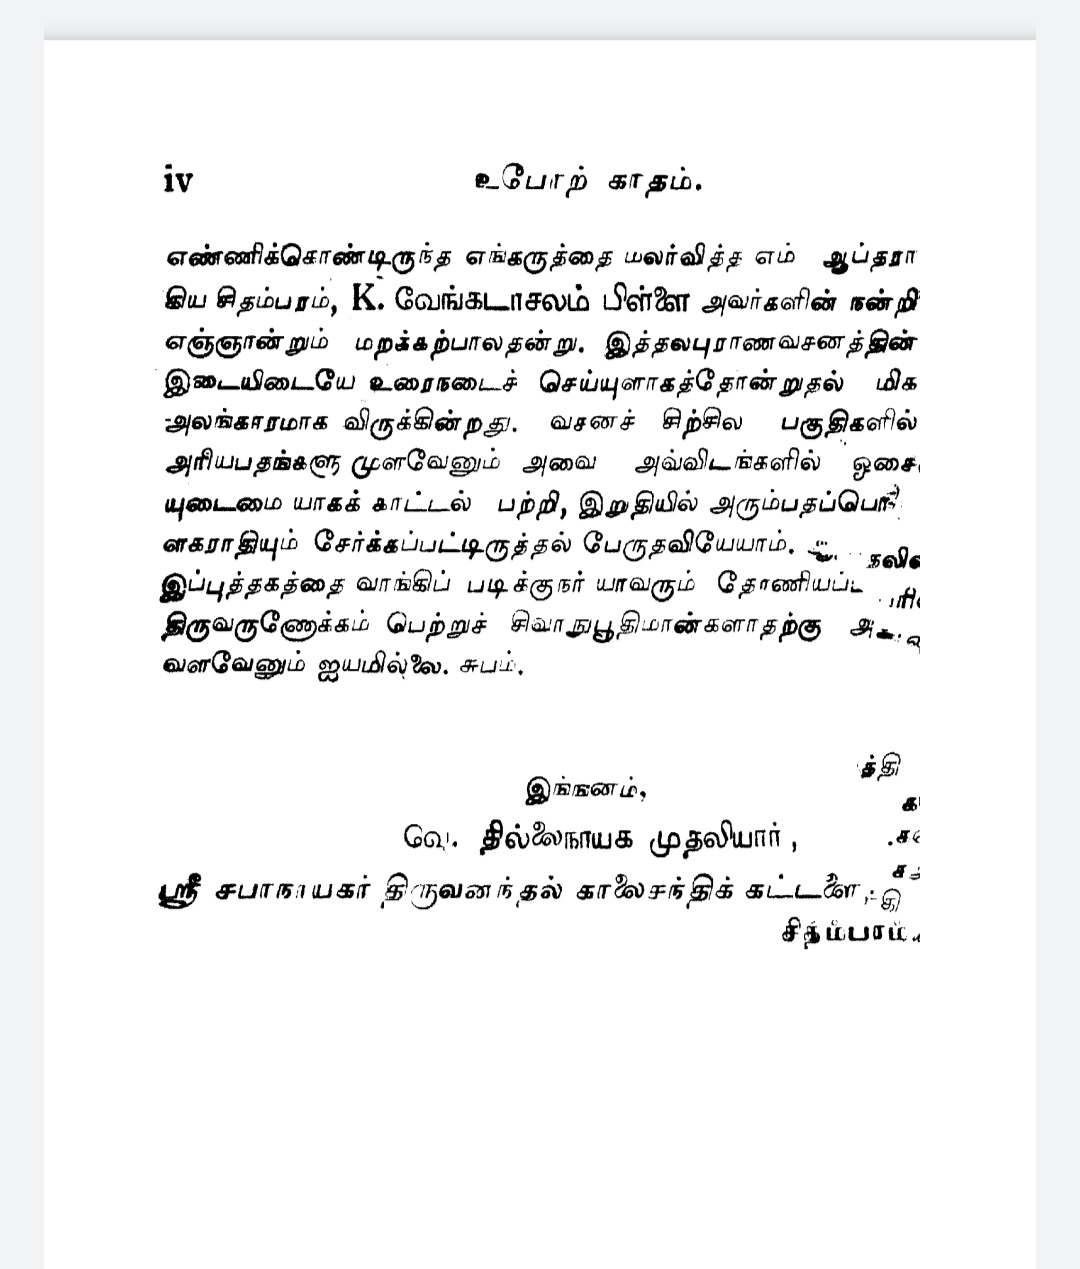 iv உபோற் காதம்.
எண்ணிக்கொண்டிருந்த எங்கருத்தை மலர்வித்த எம் ஆப்தரா
கிய சிதம்பரம், K. வேங்கடாசலம் பிள்ளை அவர்களின் நன்றி
எஞ்ஞான்றும் மறக்கற்பாலதன்று. இத்தலபுராணவசனத்தின்
இடையிடையே உரைநடைச் செய்யுளாகத்தோன்றுதல் மிக
அலங்காரமாக விருக்கின்றது. வசனச் சிற்சில பகுதிகளில்
அரியபதங்களு முளவேனும் அவை அவ்விடங்களில் ஓசை
யுடைமை யாகக் காட்டல் பற்றி, இறுதியில் அரும்பதப்பொ
ளகராதியும் சேர்க்கப்பட்டிருத்தல் பேருதவியேயாம்.
இப்புத்தகத்தை வாங்கிப் படிக்குநர் யாவரும்
திருவருணோக்கம் பெற்றுச் சிவாநுபூதிமான்களாதற்கு
வளவேனும் ஐயமில்லை. சுபம்.
இங்ஙனம்,
வே. தில்லைநாயக முதலியார்,
ஸ்ரீ சபாநாயகர் திருவனந்தல் காலைசந்திக் கட்டளை,
சிதம்பரம்.